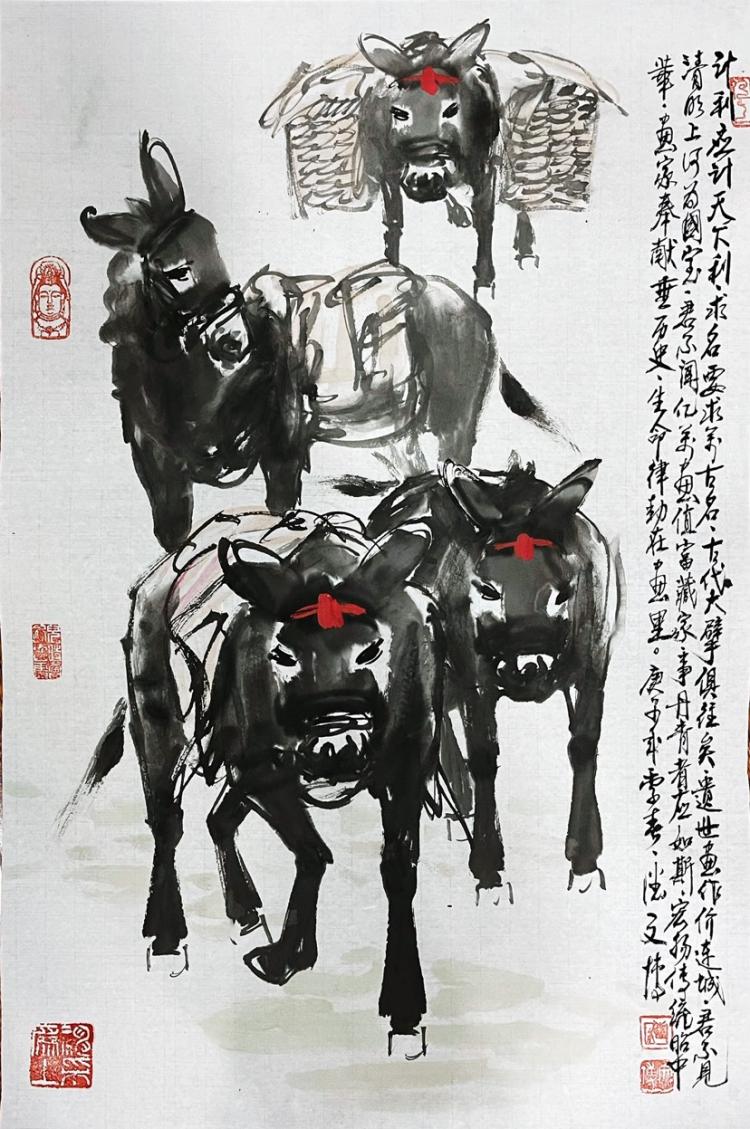 计利应计天下利·求名要求万古名·古代大擘俱往矣·遗世画作价连城·君不见
清明上河为国宝·君不闻亿万画值富藏家·事丹青者应如斯·宏扬传统昭中
华·画家奉献垂历史·生命律动在画里。庚子年雪春·